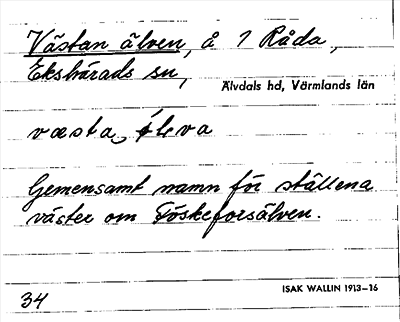 Västan älven, å i Råda,
Ekshärads sn,
Älvdals hd, Värmlands län
væsta
Gemensamt namn för ställena
väster om Töskeforsälven.
34
ISAK WALLIN 1913–16